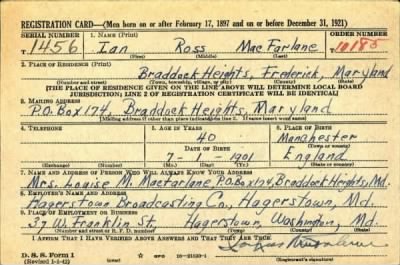 REGISTRATION CARD—(Men born on or after February 17, 1897 and on or before December 31, 1921)
SERIAL NUMBER 1. NAME (Print) ORDER NUMBER
T 1456 Ian Ross MacFarlane 10183
(First) (Middle) (Last)
2. PLACE OF RESIDENCE (Print)
Braddock Heights, Frederick, Maryland
(Number and street) (Town, township, village, or city) (County) (State)
[THE PLACE OF RESIDENCE GIVEN ON THE LINE ABOVE WILL DETERMINE LOCAL BOARD
JURISDICTION; LINE 2 OF REGISTRATION CERTIFICATE WILL BE IDENTICAL]
3. MAILING ADDRESS
P.O. Box 174, Braddock Heights, Maryland
[Mailing address if other than place indicated on line 2. If same insert word same]
4. TELEPHONE 5. AGE IN YEARS 6. PLACE OF BIRTH
40 Manchester
DATE OF BIRTH (Town or county)
7-1-1901 England
(Exchange) (Number) (Mo.) (Day) (Yr.) (State or country)
7. NAME AND ADDRESS OF PERSON WHO WILL ALWAYS KNOW YOUR ADDRESS
Mrs. Louise M. Macfarlane, P.O. Box 174, Braddock Heights, Md.
8. EMPLOYER'S NAME AND ADDRESS
Hagerstown Broadcasting Co., Hagerstown, Md.
9. PLACE OF EMPLOYMENT OR BUSINESS
37 W. Franklin St., Hagerstown, Washington, Md.
(Number and street or R. F. D. number) (Town) (County) (State)
I AFFIRM THAT I HAVE VERIFIED ABOVE ANSWERS AND THAT THEY ARE TRUE.
D. S. S. Form 1
(Revised 1-1-42) GPO 16—21630-1